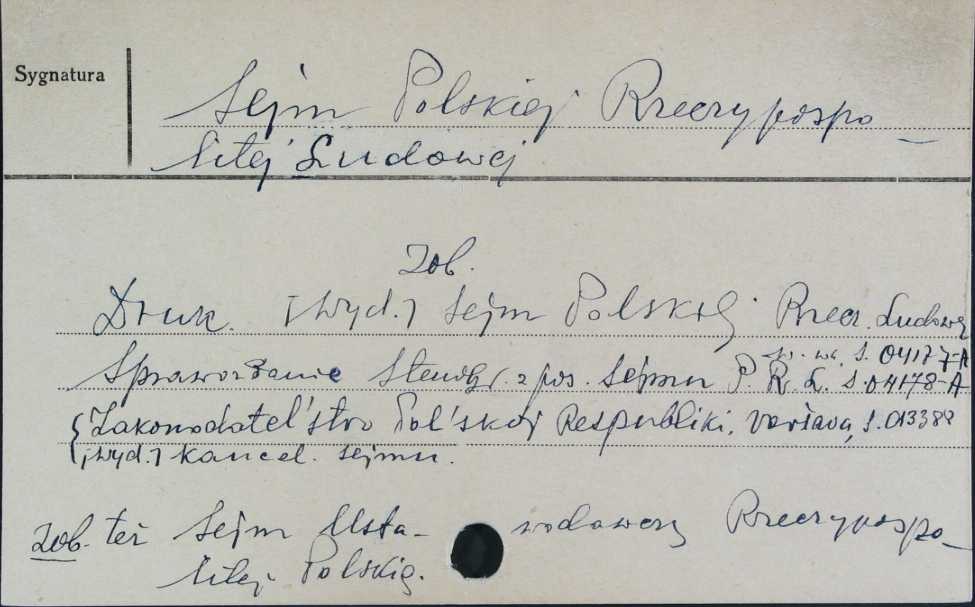 Sygnatura
Sejm Polskiej Rzeczypospo-
litej Ludowej
Zob.
Druk. [wyd.] Sejm Polskiej Rzecz. Ludowej
S. 04177-A
Sprawozdanie Stenogr. z pos. Sejmu P. R. L. S. 04178-A
Zakonodatel'stvo Pol'skoj Respubliki. Varšava, S. 013388
[wyd.] Kancel. Sejmu.
Zob. też Sejm Ustawodawczy Rzeczypospo-
litej Polskiej.